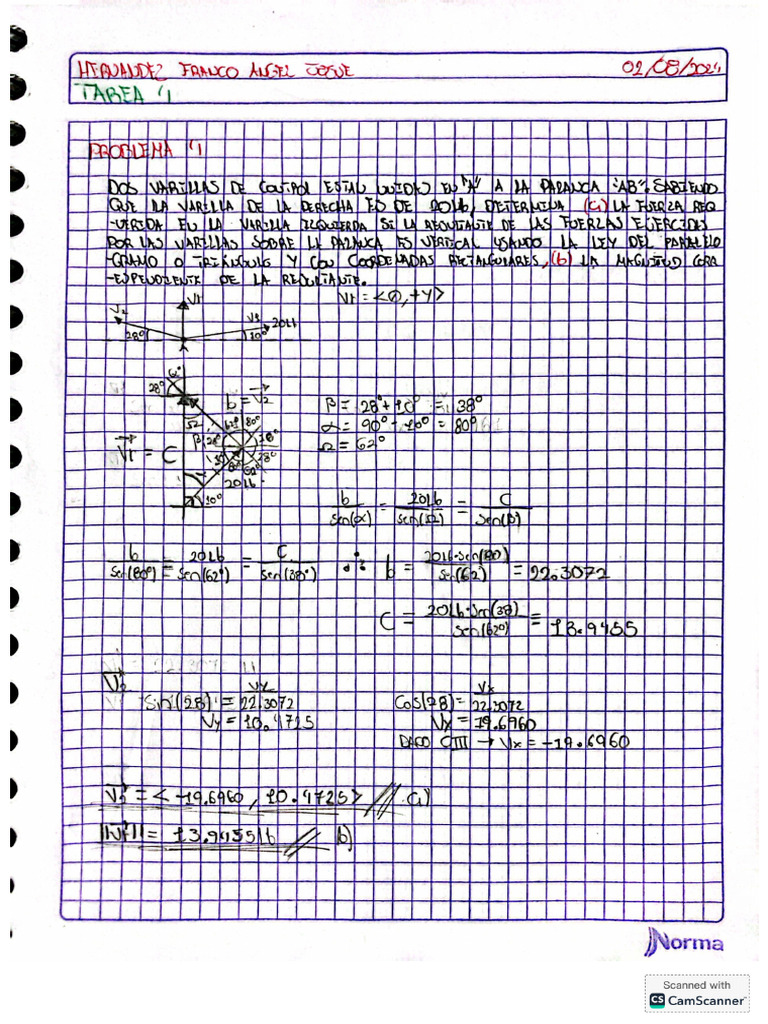 HERNANDEZ FRANCO ANGEL JOSUE 02/08/2024
TAREA 4
PROBLEMA 4
DOS VARILLAS DE CONTROL ESTAN UNIDAS EN "A" A LA PALANCA "AB". SABIENDO
QUE LA VARILLA DE LA DERECHA ES DE 20Lb, DETERMINA (a) LA FUERZA REQ
-UERIDA EN LA VARILLA IZQUIERDA SI LA REQULTANTE DE LAS FUERZAS EJERCIDAS
POR LAS VARILLAS SOBRE LA PALANCA ES VERTICAL USANDO LA LEY DEL PARALELO
-GRAMO O TRIANGULO Y CON COORDENADAS RECTANGULARES, (b) LA MAGNITUD CORR
-ESPENDIENTE DE LA RESULTANTE.
Vr = <0, +Y>
V2 Vr V1 20Lb
28° 10°
A
62°
28°
b = V2
Ω 62° 80°
β 28° 28°
Vr = C
80° 62°
20Lb
10°
β = 28° + 10° = 38°
α = 90° - 10° = 80°
Ω = 62°
b/sen(α) = 20Lb/sen(Ω) = C/sen(β)
b/sen(80°) = 20Lb/sen(62°) = C/sen(38°) ∴ b = 20Lb·sen(80)/sen(62) = 22.3072
C = 20Lb·sen(38)/sen(62°) = 13.9455
V2
Vy Vx
Sin(28) = 22.3072 Cos(28) = 22.3072
Vy = 10.4725 Vx = 19.6960
DADO CIII → Vx = -19.6960
V2 = < -19.6960, 10.4725 > // a)
||Vr|| = 13.9455lb // b)
Norma
Scanned with
CS CamScanner